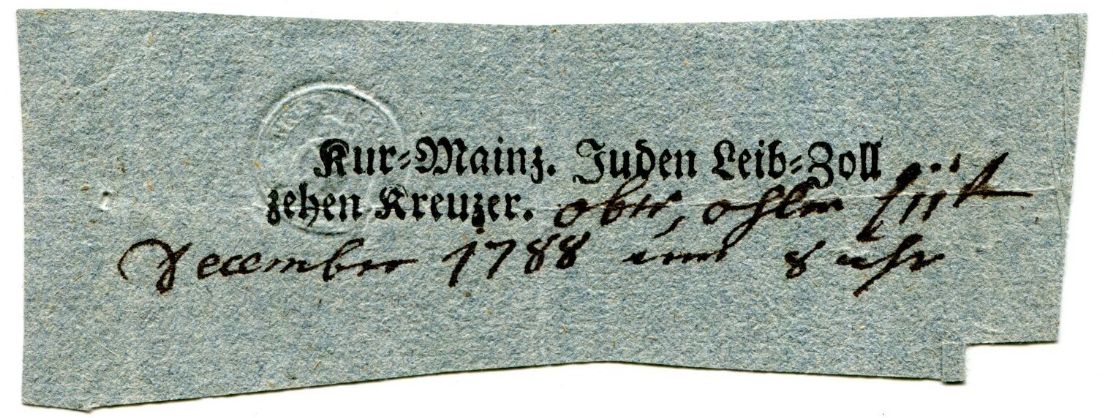 Kur-Mainz. Juden Leib-Zoll
zehen Kreuzer.
December 1788 um 8 uhr